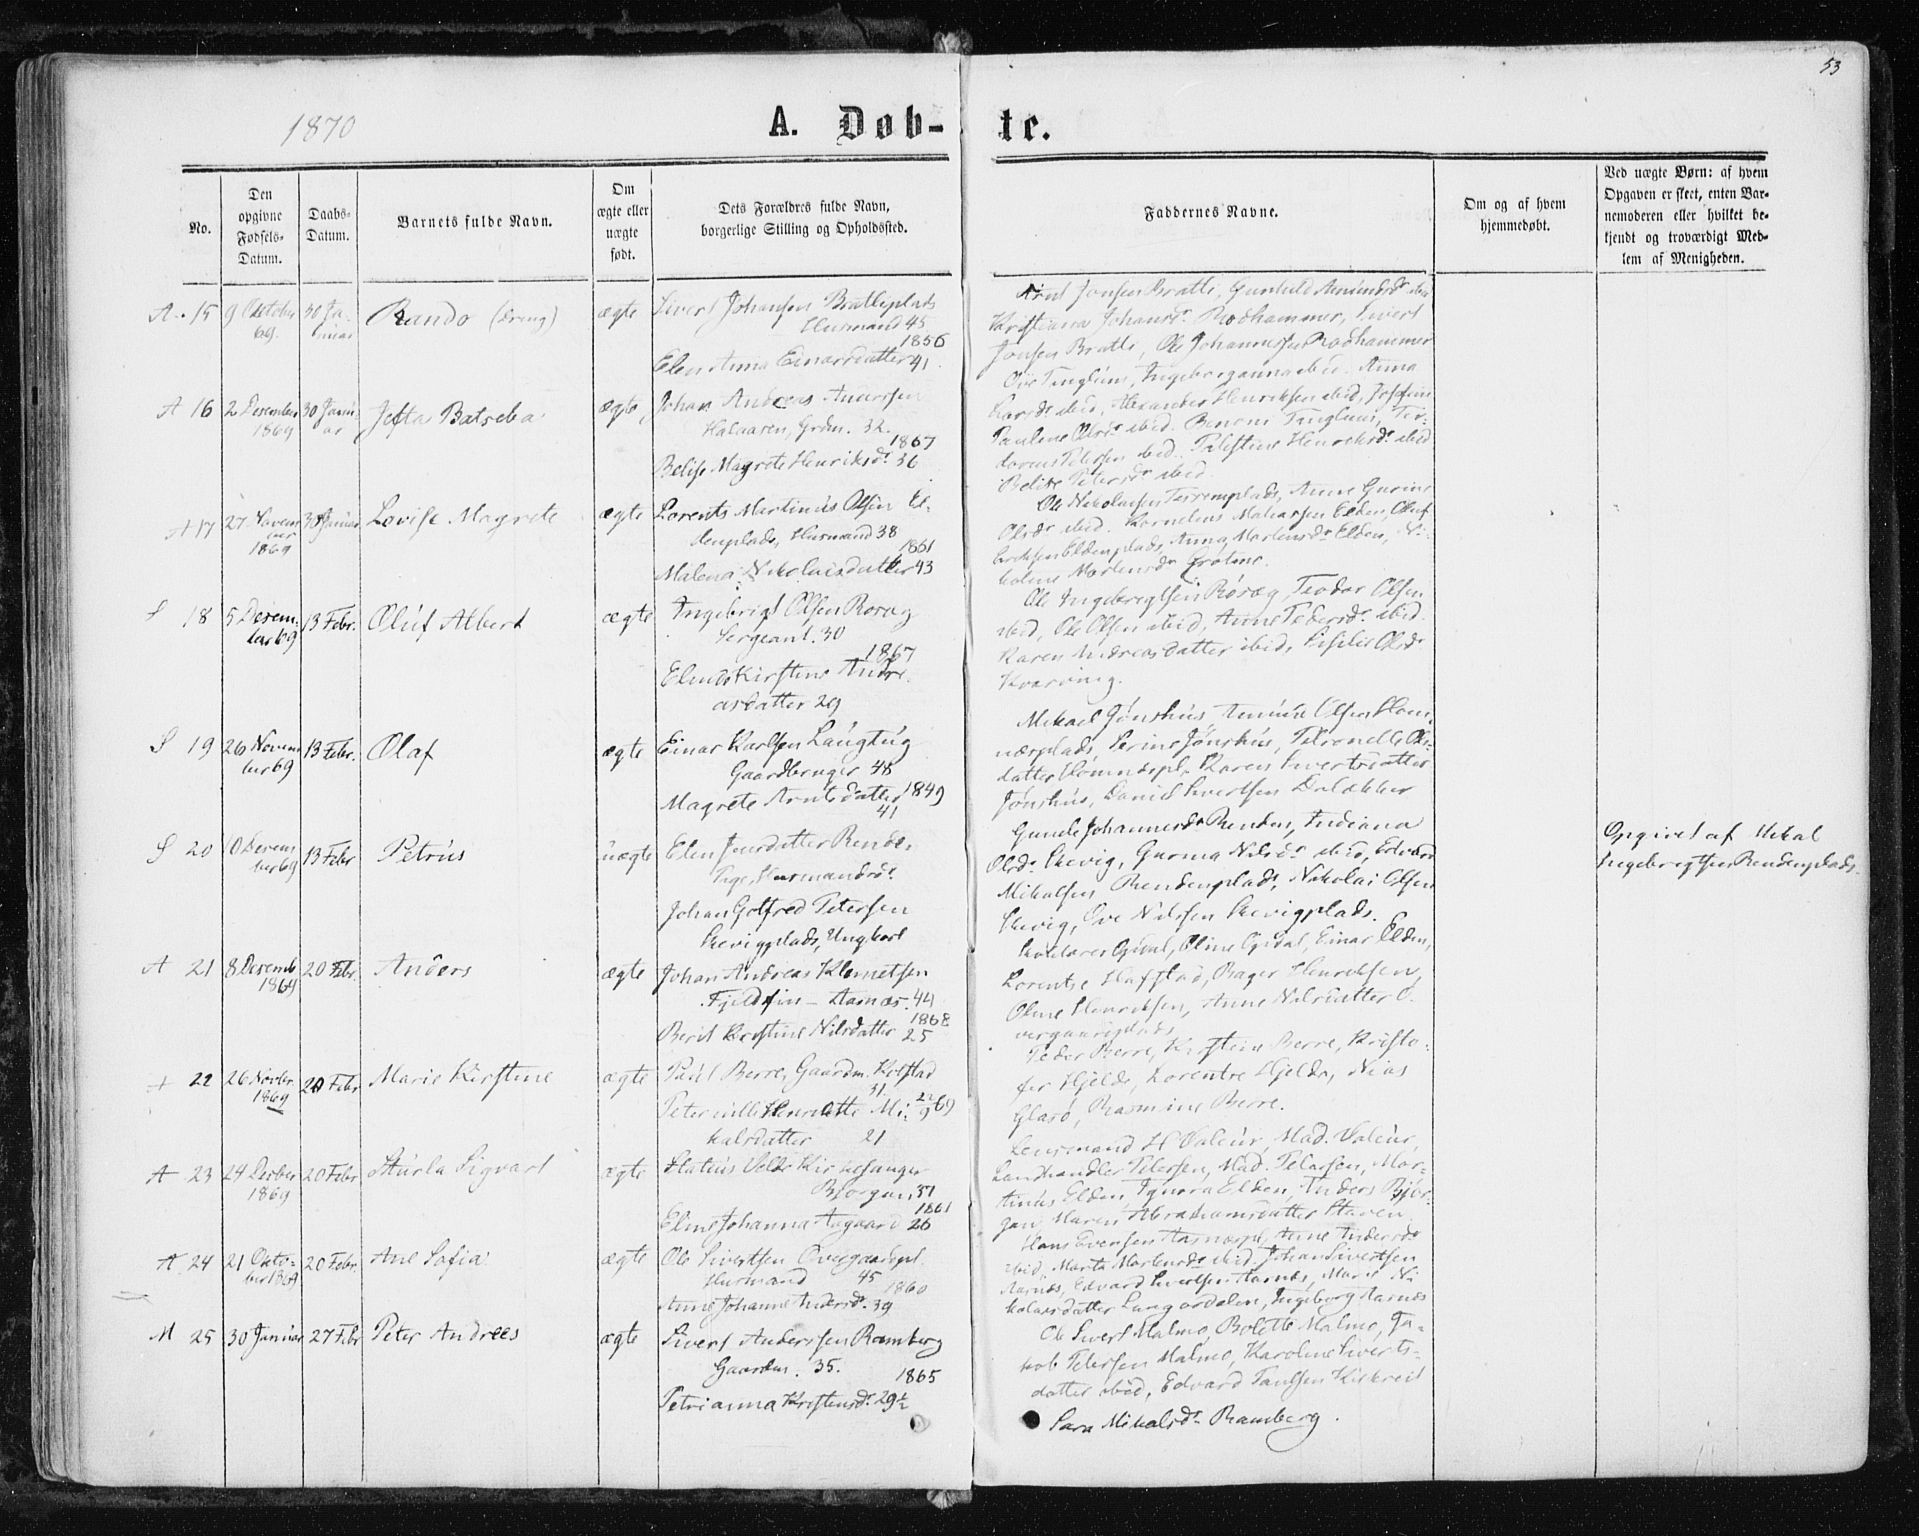 53
1870
A. Døb-te.
No.
Den opgivne Fødsels-Datum.
Daabs-Datum.
Barnets fulde Navn.
Om ægte eller uægte født.
Dets Forældres fulde Navn, borgerlige Stilling og Opholdssted.
Faddernes Navne.
Om og af hvem hjemmedøbt.
Ved uægte Børn: af hvem Opgaven er skeet, enten Barnemoderen eller hvilket bekjendt og troværdigt Medlem af Menigheden.
A. 15 9 Oktober 69. 30 Januar Rando (dreng) ægte
Sivert Johansen Bratteplads
Husmand 45
1856
Elen Anna Einarsdatter 41.
Arnt Jonsen Bratte, Gunhild Amundsdr ibid
Kristianna Johansdr Rodhammer, Sivert
Jonsen Bratte, Ole Johannessen Rodhammer
A 16 2 Desember 1869 30 Januar Jefta Batseba ægte,
Johan Andreas Anderssen
Halaaren, Grdm. 32.
1867
Belise Magrete Henriksdr 36
Ove Tinglum, Ingeborganna ibid. Anna
Larsdr ibid, Alexander Henriksen ibid, Josefine
Pauline Olsdr ibid. Benoni Tinglum, Teodorus
Petersen ibid. Palestine Henriksdr ibid
Belise Petersdr ibid.
A 17 27 November 1869 30 Januar Lovise Magrete ægte
Lorents Martinus Olsen Eldenplads, Husmand 38
1861
Malena Nikolaisdatter 43
Ole Nikolaisen, Anne Gurine
Olsdr ibid. Kornelius Eldén, Oluf
Eldenplads, Anna Martensdr Elden, Nikoline
Mortensdr Grotme.
S 18 5 Desember 69 13 Febr. Oluf Albert ægte
Ingebrigt Olsen Roræg
Sergeant. 30
1867
Elende Kirstine Andreasdatter 29
Ole Ingebrigtsen Røræg, Teodor Olsen
ibid, Ole Olsen ibid, Anne Pedersdr ibid.
Karen Andreasdatter ibid, Sefilie Olsdr
Kvarving.
S 19 26 November 69 13 Febr. Olaf ægte
Einar Karlsen Laugtug
Gaardbruger 48
1849
Magrete Arntsdatter 41
Mikael Jønshus, Amund Olsen Homnæsplads,
Serine Jønshus, Petronelle Olsdatter
Homnæspl. Karen Sivertsdatter
Jønshus, Daniel Sivertsen Dalækker
S 20 10 Desember 69 13 Febr Petrus uægte
Elen Jensdatter Renden
Pige, Husmandsdr
Johan Gotfred Petersen
Skevigplads, Ungkarl
Gunele Johannesdr Renden, Indiana
Olsdr Skevig, Gurina Nilsdr ibid, Edvard
Mikalsen Rendenplads, Nikolai Olsen
Skevig, Ove Nilssen Skevigplads.
Opgivet af Mikal
Ingebrigtsen Rendenplads.
A 21 8 Desemb 1869 20 Febr. Anders ægte
Johan Andreas Klemetsen
Fjeldfin - Aarnæs. 44
1868
Berit Kristine Nilsdatter 25
Skolelærer Opdal, Oline Opdal, Einar Elden,
Lorentse Hafstad, Bager Henriksen,
Oline Henriksen, Anne Nilsdatter Overgaardsplads
A 22 26 Novbr. 1869 20 Febr Marie Kirstine ægte
Paul Berre, Gaardm. Kolstad
31.
Peternille Henriette Mikalsdatter 21
22/9 69
Peder Berre, Kirstine Berre, Kristofer
Hjelde, Lorentse Hjelde, Nias
Glasø, Rasmine Berre.
A 23 24 Desber 1869 20 Febr Sturla Sigvart ægte
Statius Velde Kirkesanger
Bjørgan, 37
1861
Eline Johanna Aagaard 26
Lensmand H Valeur, Mad. Valeur,
Landhandler Petersen, Mad. Petersen, Martinus
Elden, Ignora Elden, Anders Bjørgan,
Maren Abrahamsdatter Staven,
A 24 21 Oktober 1869 20 Febr. Ane Sofia ægte
Ole Sivertsen Overgaardspl.
Husmand 45
1860
Anne Johanne Andersdr. 39
Hans Evensen Aarnæspl, Anne Andersdr
ibid, Marta Martensdr ibid. Johan Sivertsen
Aarnæs, Edvard Sivertsen Aarnæs, Marit Nikolaisdatter
Langørdalen, Ingeborg Aarnæs
M 25 30 Januar 27 Febr Peter Andreas ægte
Sivert Anderssen Ramberg
Gaardm. 35.
1865
Petrianna Kristensdr. 29½
Ole Sivert Malmo, Bolette Malmo, Jakob
Petersen Malmo, Karoline Sivertsdatter
ibid, Edvard Paulsen Kirkreit
Sara Mikalsdr Ramberg.